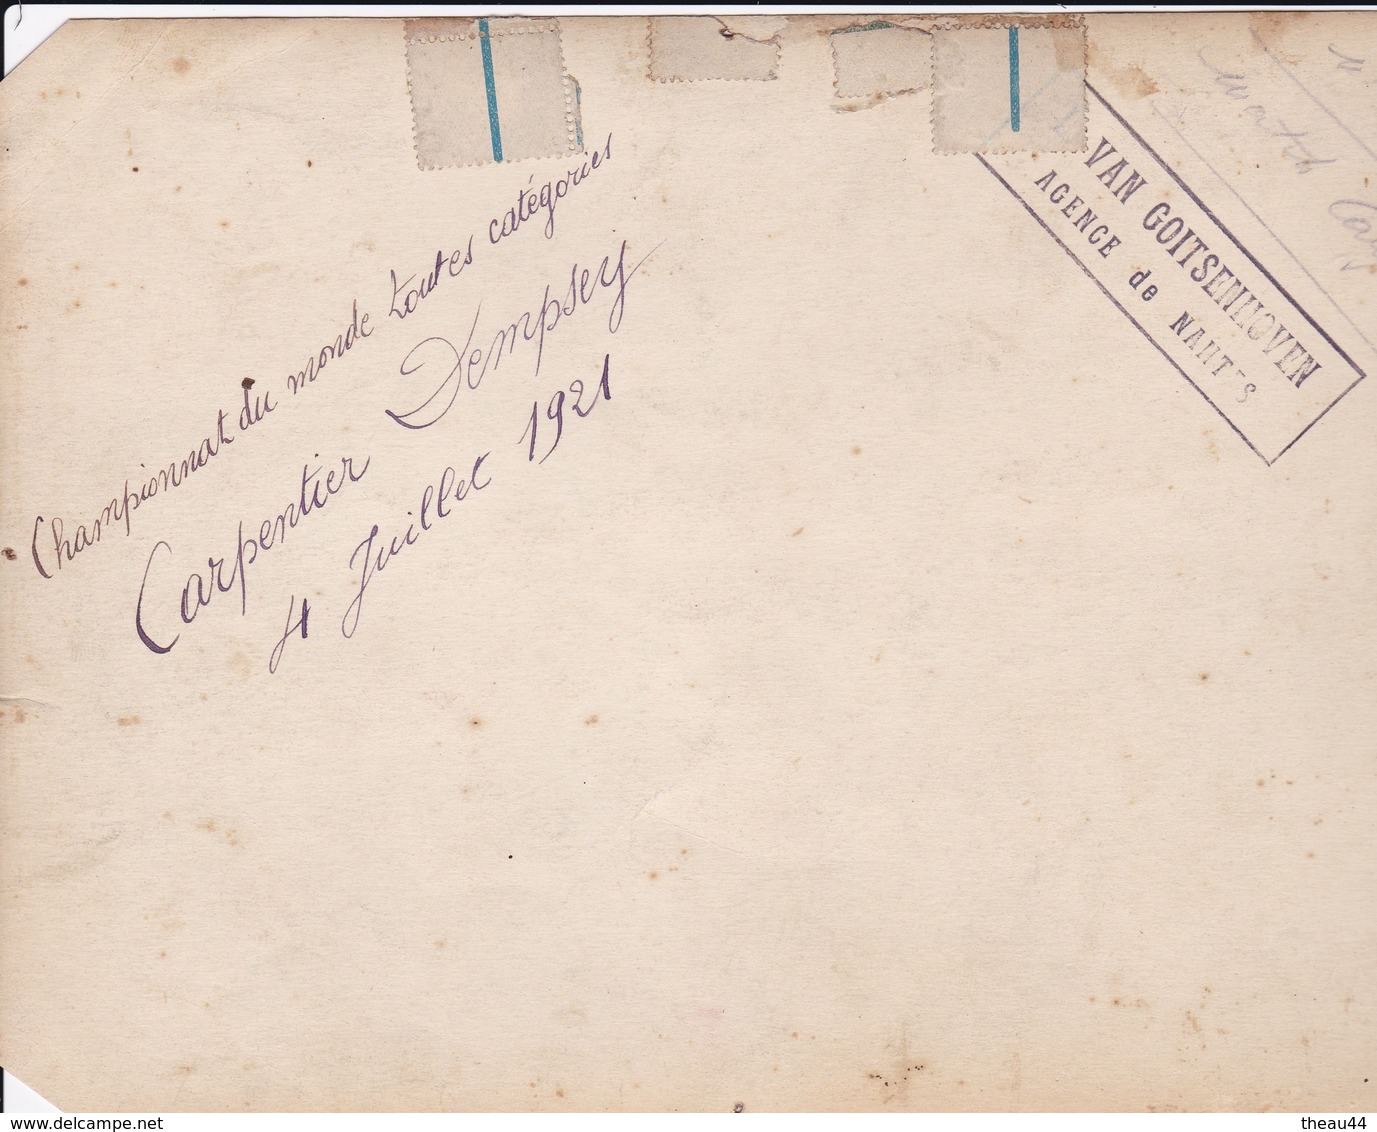 Championnat du monde toutes catégories
Carpentier Dempsey
4 Juillet 1921
VAN GOITSENHOVEN
AGENCE de NANTES
match Car
www.delcampe.net
theau44